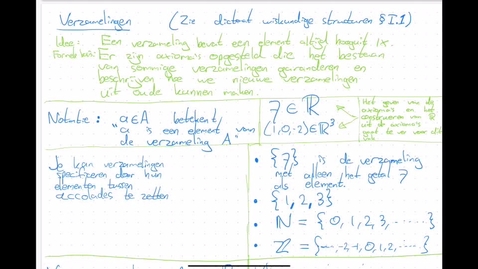 Verzamelingen (Zie dictaat wiskundige structuren § I.1)
Idee: Een verzameling bevat een element altijd hooguit 1x.
Formele basis: Er zijn axioma's opgesteld die het bestaan
van sommige verzamelingen garanderen en
beschrijven hoe we nieuwe verzamelingen
uit oude kunnen maken.
Notatie: "a∈A betekent
a is een element van
de verzameling A"
7 ∈ ℝ
(1,0,-2) ∈ ℝ³
Het geven van de
axioma's en het
construeren van ℝ
uit de axioma's
gaat te ver voor dit
vak
Je kan verzamelingen
specificeren door hun
elementen tussen
accolades te zetten
• {7} is de verzameling
met alleen het getal 7
als element.
• {1,2,3}
• ℕ = {0,1,2,3,......}
• ℤ = {...,-2,-1,0,1,2,...}